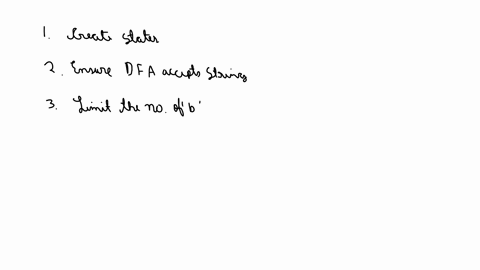 1. Create states
2. Ensure DFA accepts strings
3. Limit the no. of 'b'